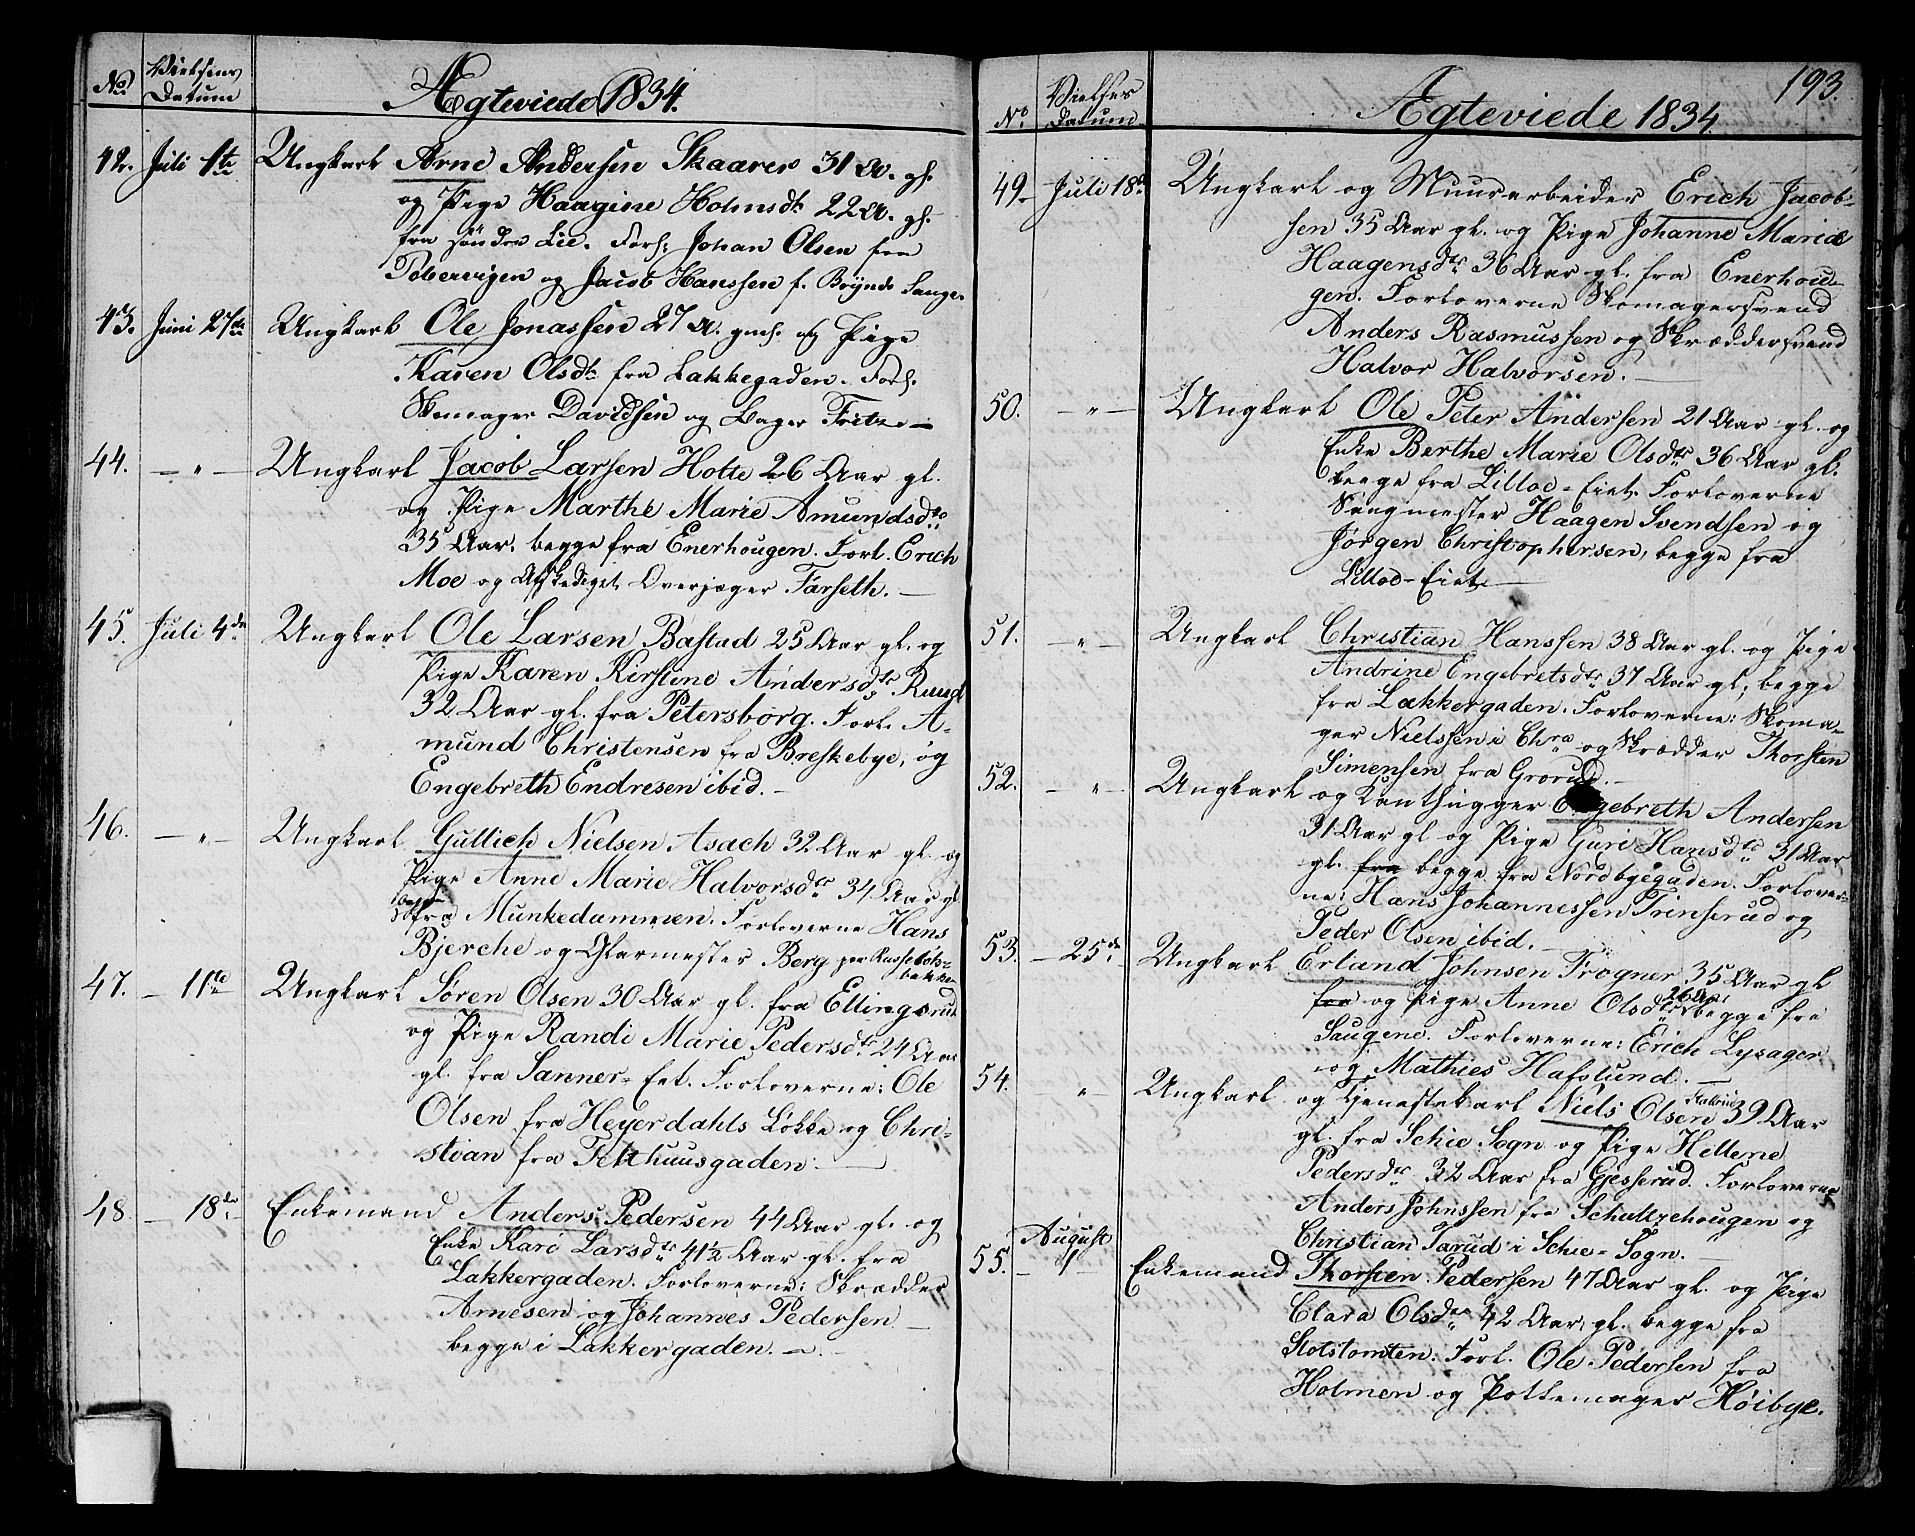 No Vielsens Datum
Ægteviede 1834.
42. Juli 1te Ungkarl Arne Andersen Skaarer 31 A. gl.
og Pige Haagine Holmsdt. 22 A. gl.
fra søndre Lie. Forl: Johan Olsen fra
Pebervigen og Jacob Hanssen f. Brynds Lange
43. Juni 27de Ungkarl Ole Jonassen 27 A. gml. og Pige
Karen Olsdt. fra Lakkegaden. Forl.
Skomager Davidsen og Bager Fritze
44. " Ungkarl Jacob Larsen Holte 26 Aar gl.
og Pige Marthe Marie Amundsdtr
35 Aar, begge fra Enerhougen. Forl. Erich
Moe og Afskediget Overjæger Farseth.
45. Juli 4de Ungkarl Ole Larsen Bastad 25 Aar gl. og
Pige Karen Kirstine Andersdtr Ruud
32 Aar gl. fra Petersborg. Forl. A-
mund Christensen fra Breskebye, og
Engebreth Endresen ibid.
46. " Ungkarl Gullich Nielsen Asach 32 Aar gl. og
Pige Anne Marie Halvorsdtr 34 Aar gl
begge fra Munkedammen. Forloverne Hans
Bjerche og Glarmester Berg paa Russeløk-
bakken
47. 11te Ungkarl Søren Olsen 30 Aar gl. fra Ellingsrud
og Pige Randi Marie Pedersdtr 24 Aar
gl. fra Sanner-Eet. Forloverne: Ole
Olsen fra Heyerdahls Løkke og Chri-
stian fra Felthuusgaden.
48. 18de Enkemand Anders Pedersen 44 Aar gl. og
Enke Kari Larsdtr 41½ Aar gl. fra
Lakkergaden. Forloverne: Skrædder
Arnesen og Johannes Pedersen
begge i Lakkergaden.
193.
No. Vielses Datum
Ægteviede 1834.
49. Juli 18de Ungkarl og Muurarbeider Erich Jacob-
sen 35 Aar gl. og Pige Johanne Marie
Haagensdtr 36 Aar gl. fra Enerhou-
gen. Forloverne Skomagersvend
Anders Rasmussen og Skræddersvend
Halvor Halvorsen.
50. " Ungkarl Ole Peter Andersen 21 Aar gl. og
Enke Berthe Marie Olsdtr 36 Aar gl.
begge fra Lilloe-Eiet. Forloverne
Saugmester Haagen Svendsen og
Jørgen Christophersen, begge fra
Lilloe-Eiet
51. " Ungkarl Christian Hanssen 38 Aar gl. og Pige
Andrine Engebretsdtr 37 Aar gl; begge
fra Lakkergaden. Forloverne: Skoma-
ger Nielssen i Chra og Skrædder Thorsten
Simensen fra Grorud.
52. " Ungkarl og Kanthugger Engebreth Andersen
31 Aar gl og Pige Guri Hansdtr 31 Aar
gl. fra begge fra Nordbyegaden. Forlover-
ne: Hans Johannessen Trinserud og
Peder Olsen ibid.
53. 25de Ungkarl Erland Johnsen Trogner 35 Aar gl
fra og Pige Anne Olsdtr 26 Aar begge fra
Saugene. Forloverne: Erich Lysager
og Mathies Hafslund.
54. " Ungkarl og Tjenestekarl Niels Olsen 39 Aar
gl. fra Schie Sogn og Pige Hellene
Pedersdtr 32 Aar fra Gjesserud. Forloverne
Anders Johnssen fra Schultzehougen og
Christian Tarud i Schie-Sogn.
55. August 1 Enkemand Thorsten Pedersen 47 Aar gl. og Pige
Clara Olsdtr 42 Aar, gl. begge fra
Slotstomten. Forl. Ole Pedersen fra
Holmen og Pottemager Høibye.